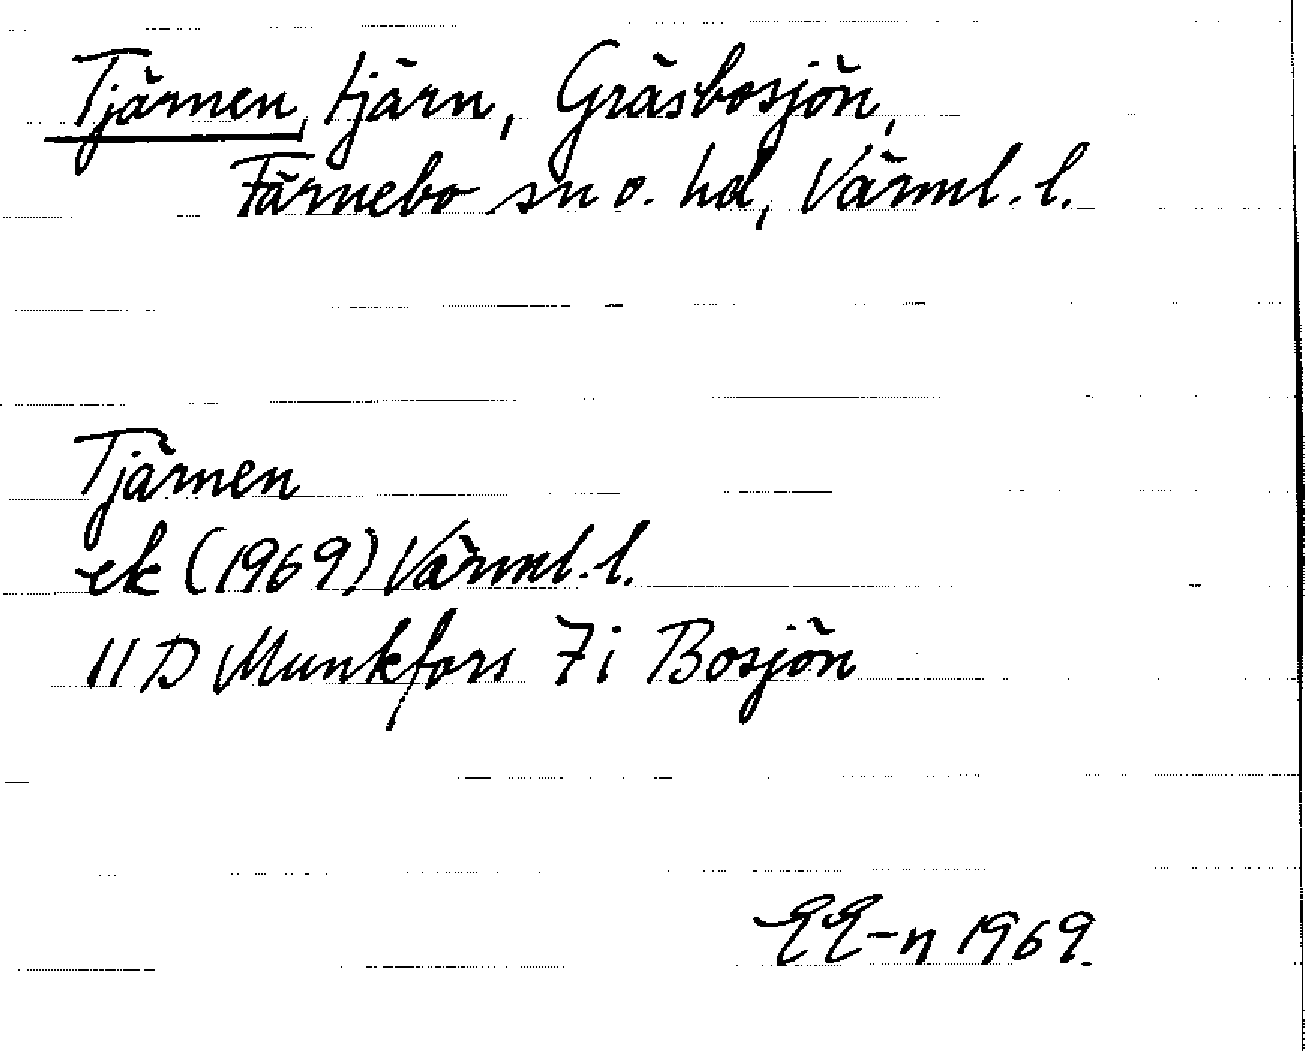 Tjärnen, tjärn, Gräsbosjön,
Färnebo sn o. hd, Värml. l.
Tjärnen
ek (1969) Värml. l.
11 D Munkfors 7 i Bosjön
EE-n 1969